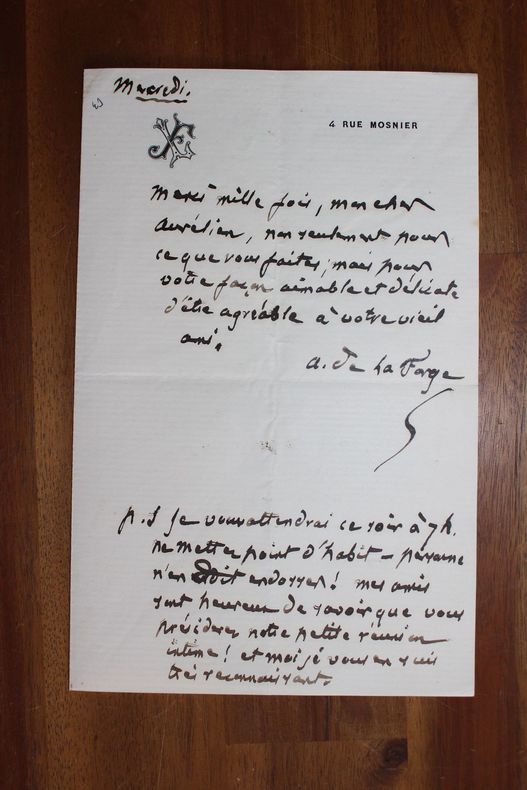 Mercredi.
4 RUE MOSNIER
Merci mille fois, mon cher
Aurélien, non seulement pour
ce que vous faites, mais pour
votre façon aimable et délicate
d'être agréable à votre vieil
ami.
a. de La Forge
p. S je vous attendrai ce soir à 7h.
ne mettez point d'habit – personne
n'en doit endosser! mes amis
sont heureux de savoir que vous
présiderez notre petite réunion
intime! et moi je vous en suis
très reconnaissant.